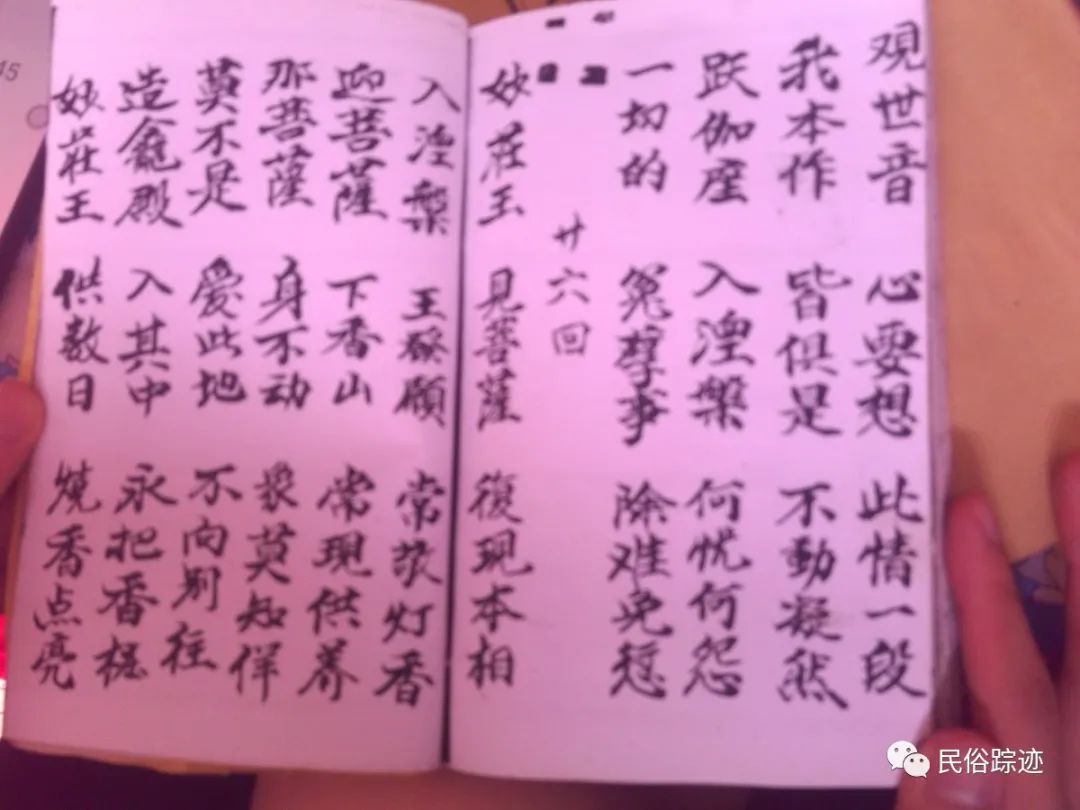 观世音 心要想 此情一段
我本作 皆俱是 不動凝然
跃伽座 入湼槃 何忧何怨
一切的 冤孽事 除难免愆
廿六回
妙莊王 見菩薩 復現本相
入湼槃 王發願 常敬灯香
迎菩薩 下香山 常現供养
那菩薩 身不动 衆莫知佯
莫不是 爱此地 不向别往
造龕殿 入其中 永把香
妙莊王 供数日 燒香点亮
45
民俗踪迹